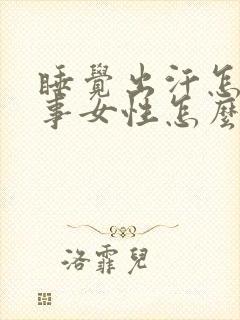 睡覺出汗怎
事女性怎麼
洛霏兒